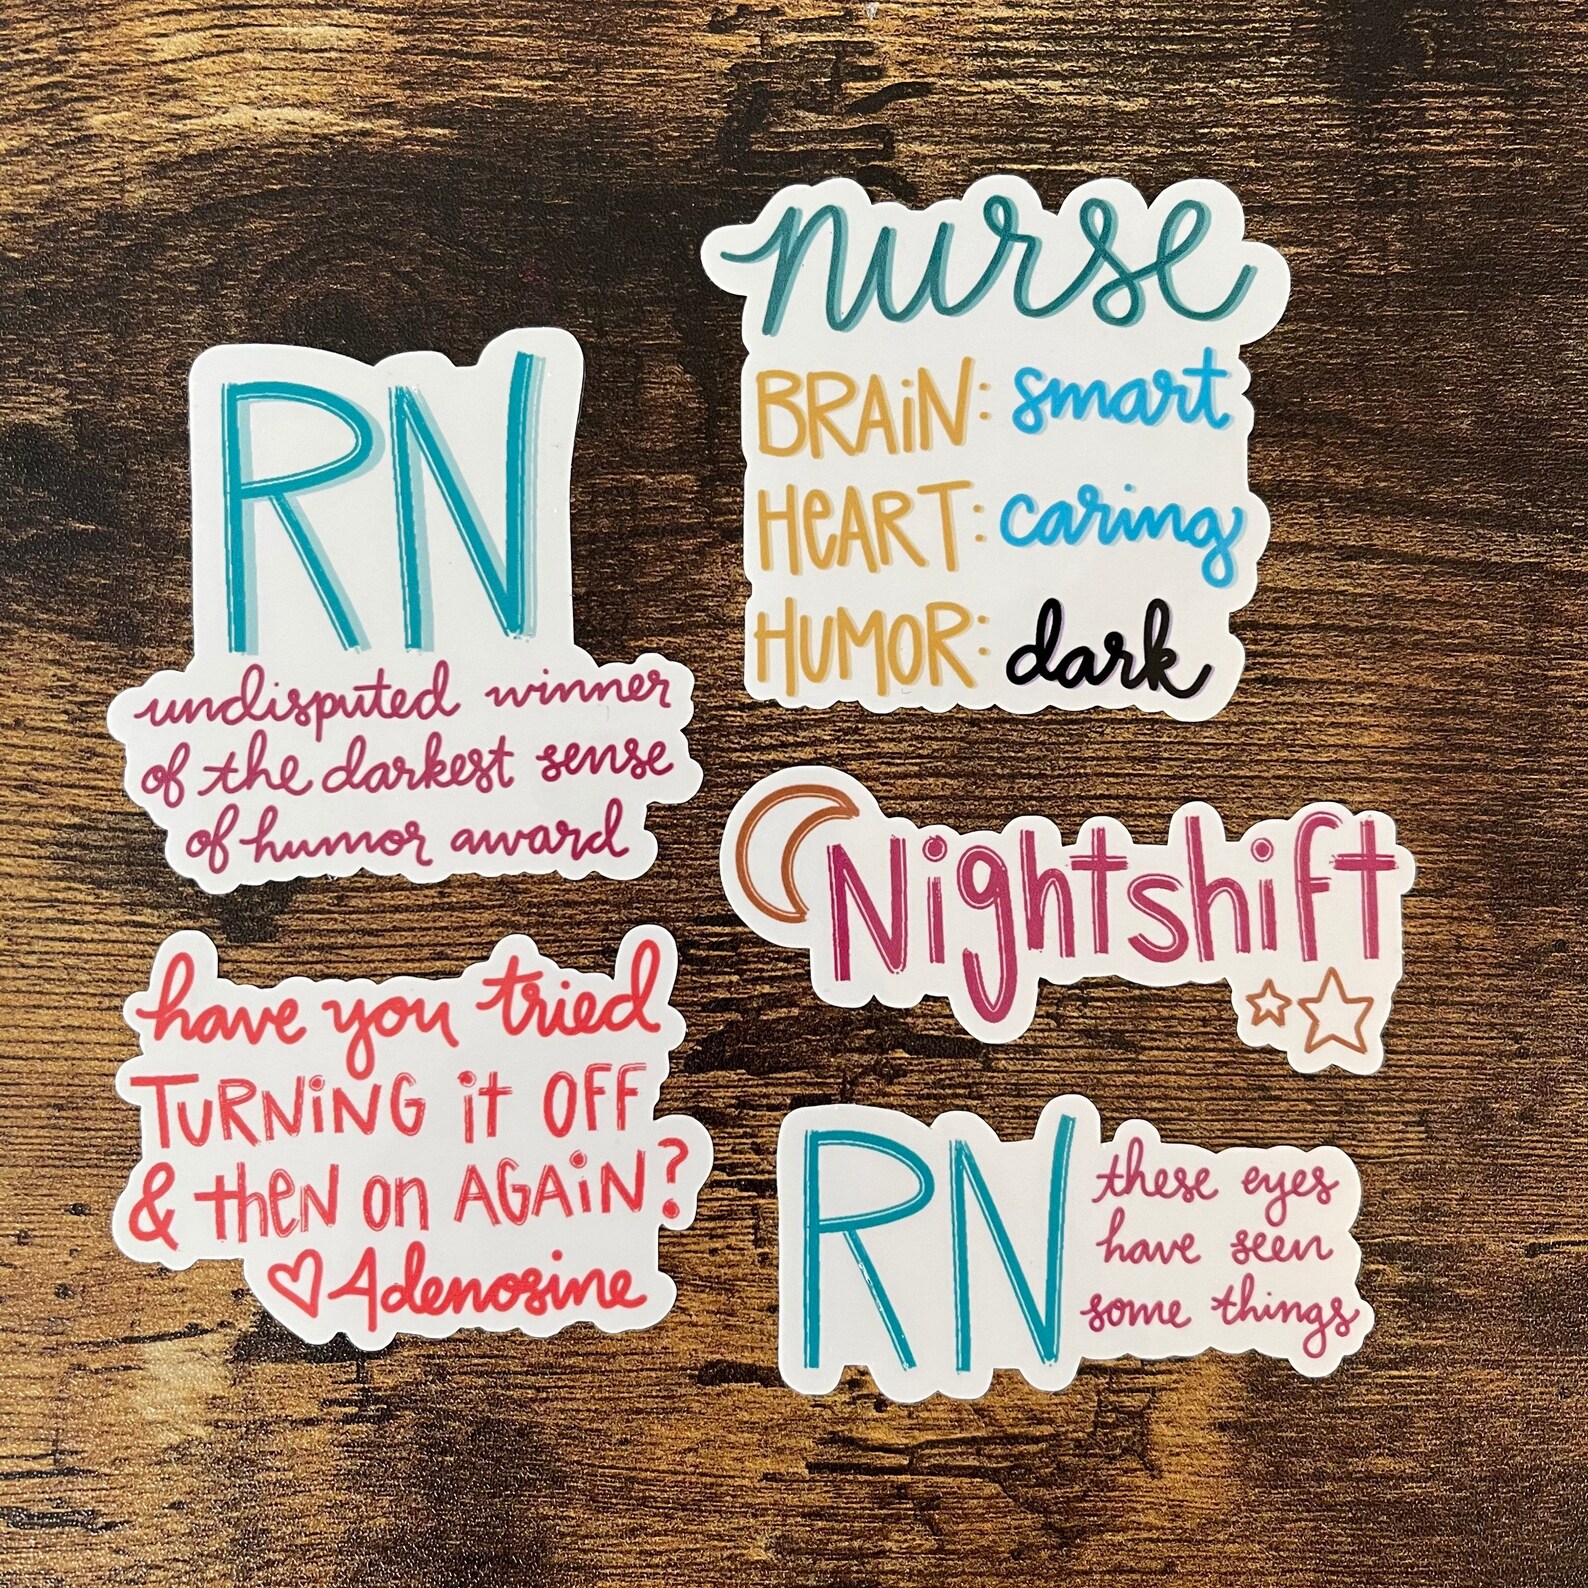 RN
undisputed winner
of the darkest sense
of humor award
nurse
BRAiN: smart
HeART: caring
HUMOR: dark
Nightshift
have you tried
TURNiNG it OFF
& theN on AGAiN?
Adenosine
RN
these eyes
have seen
some things